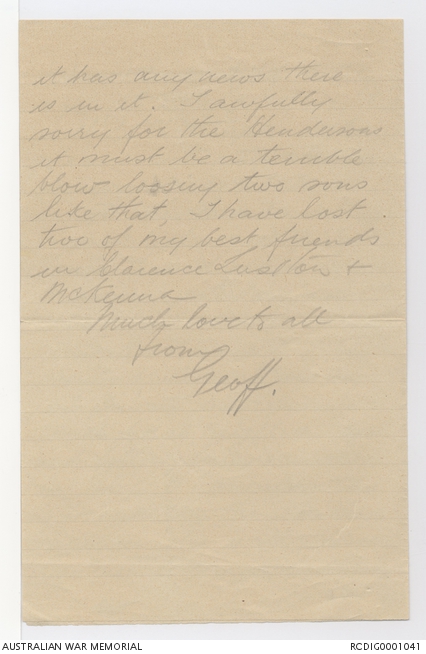 it has any news there
is in it. I awfully
sorry for the Hendersons
it must be a terrible
blow loosing two sons
like that, I have lost
two of my best friends
in Clarence Luxton +
McKenna
Much love to all
from
Geoff.
AUSTRALIAN WAR MEMORIAL
RCDIG0001041